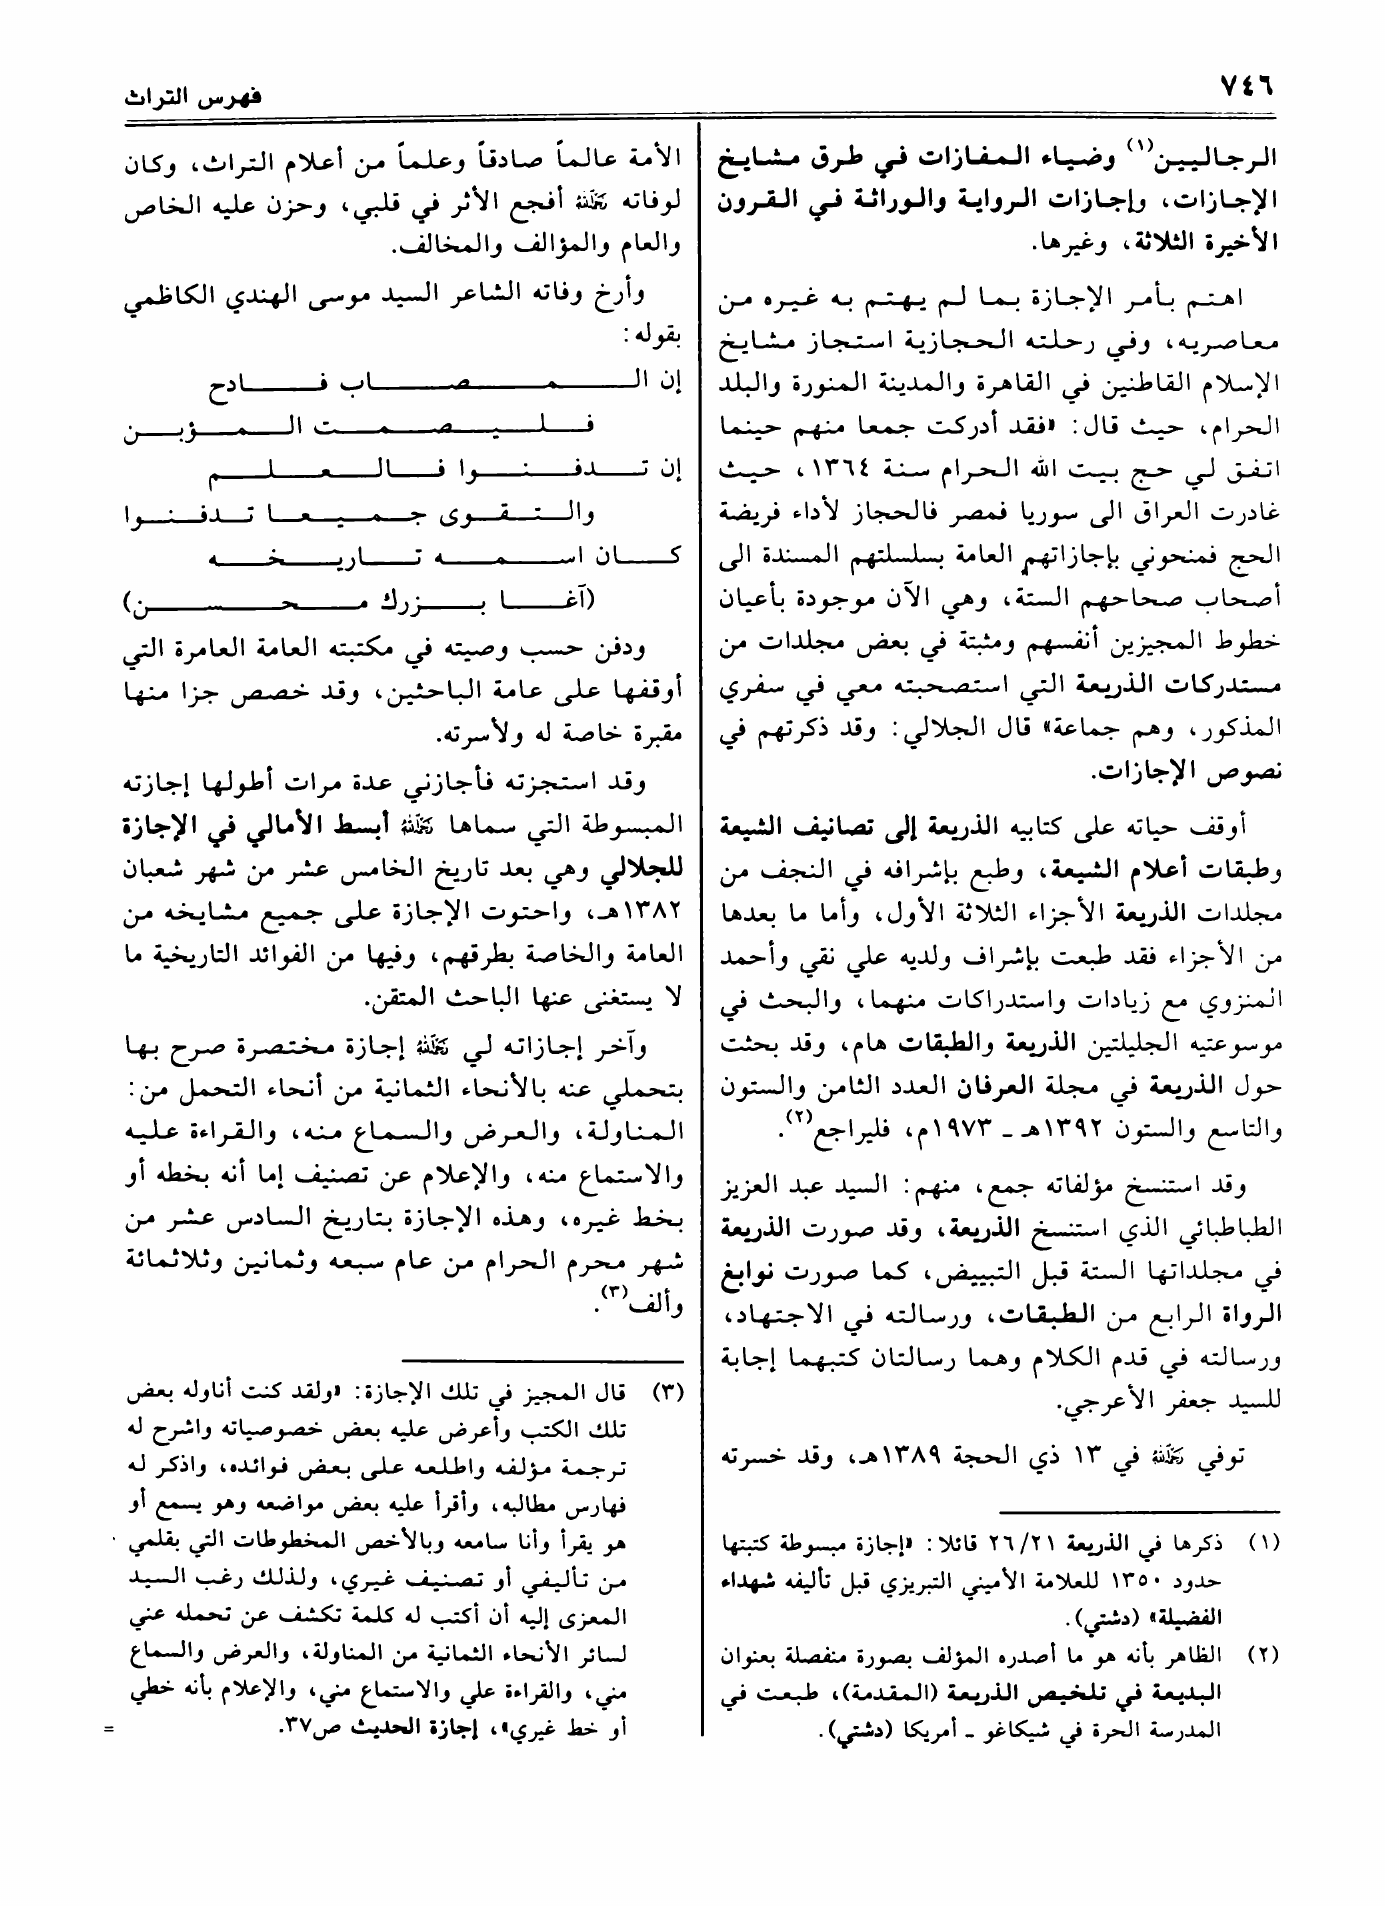 ٧٤٦
فهرس التراث
الرجاليين(١) وضياء المفازات في طرق مشايخ
الإجازات، وإجازات الرواية والوراثة في القرون
الأخيرة الثلاثة، وغيرها.
اهتم بأمر الإجازة بما لم يهتم به غيره من
معاصريه، وفي رحلته الحجازية استجاز مشايخ
الإسلام القاطنين في القاهرة والمدينة المنورة والبلد
الحرام، حيث قال: «فقد أدركت جمعا منهم حينما
اتفق لي حج بيت الله الحرام سنة ١٣٦٤، حيث
غادرت العراق الى سوريا فمصر فالحجاز لأداء فريضة
الحج فمنحوني بإجازاتهم العامة بسلسلتهم المسندة الى
أصحاب صحاحهم الستة، وهي الآن موجودة بأعيان
خطوط المجيزين أنفسهم ومثبتة في بعض مجلدات من
مستدركات الذريعة التي استصحبته معي في سفري
المذكور، وهم جماعة» قال الجلالي: وقد ذكرتهم في
نصوص الإجازات.
أوقف حياته على كتابيه الذريعة إلى تصانيف الشيعة
وطبقات أعلام الشيعة، وطبع بإشرافه في النجف من
مجلدات الذريعة الأجزاء الثلاثة الأول، وأما ما بعدها
من الأجزاء فقد طبعت بإشراف ولديه علي نقي وأحمد
المنزوي مع زيادات واستدراكات منهما، والبحث في
موسوعتيه الجليلتين الذريعة والطبقات هام، وقد بحثت
حول الذريعة في مجلة العرفان العدد الثامن والستون
والتاسع والستون ١٣٩٢هـ ـ ١٩٧٣م، فليراجع(٢).
وقد استنسخ مؤلفاته جمع، منهم: السيد عبد العزيز
الطباطبائي الذي استنسخ الذريعة، وقد صورت الذريعة
في مجلداتها الستة قبل التبييض، كما صورت نوابغ
الرواة الرابع من الطبقات، ورسالته في الاجتهاد،
ورسالته في قدم الكلام وهما رسالتان كتبهما إجابة
للسيد جعفر الأعرجي.
توفي رحمه الله في ١٣ ذي الحجة ١٣٨٩هـ، وقد خسرته
(١) ذكرها في الذريعة ٢٦/٢١ قائلا: «إجازة مبسوطة كتبتها
حدود ١٣٥٠ للعلامة الأميني التبريزي قبل تأليفه شهداء
الفضيلة» (دشتي).
(٢) الظاهر بأنه هو ما أصدره المؤلف بصورة منفصلة بعنوان
البديعة في تلخيص الذريعة (المقدمة)، طبعت في
المدرسة الحرة في شيكاغو ـ أمريكا (دشتي).
الأمة عالماً صادقاً وعلماً من أعلام التراث، وكان
لوفاته رحمه الله أفجع الأثر في قلبي، وحزن عليه الخاص
والعام والمؤالف والمخالف.
وأرخ وفاته الشاعر السيد موسى الهندي الكاظمي
بقوله:
إن المصاب فادح
فليصمت المؤبن
إن تدفنوا فالعلم
والتقوى جميعا تدفنوا
كان اسمه تاريخه
(آغا بزرك محسن)
ودفن حسب وصيته في مكتبته العامة العامرة التي
أوقفها على عامة الباحثين، وقد خصص جزا منها
مقبرة خاصة له ولأسرته.
وقد استجزته فأجازني عدة مرات أطولها إجازته
المبسوطة التي سماها رحمه الله أبسط الأمالي في الإجازة
للجلالي وهي بعد تاريخ الخامس عشر من شهر شعبان
١٣٨٢هـ، واحتوت الإجازة على جميع مشايخه من
العامة والخاصة بطرقهم، وفيها من الفوائد التاريخية ما
لا يستغنى عنها الباحث المتقن.
وآخر إجازاته لي رحمه الله إجازة مختصرة صرح بها
بتحملي عنه بالأنحاء الثمانية من أنحاء التحمل من:
المناولة، والعرض والسماع منه، والقراءة عليه
والاستماع منه، والإعلام عن تصنيف إما أنه بخطه أو
بخط غيره، وهذه الإجازة بتاريخ السادس عشر من
شهر محرم الحرام من عام سبعه وثمانين وثلاثمائة
وألف(٣).
(٣) قال المجيز في تلك الإجازة: «ولقد كنت أناوله بعض
تلك الكتب وأعرض عليه بعض خصوصياته واشرح له
ترجمة مؤلفه واطلعه على بعض فوائده، واذكر له
فهارس مطالبه، وأقرأ عليه بعض مواضعه وهو يسمع أو
هو يقرأ وأنا سامعه وبالأخص المخطوطات التي بقلمي
من تأليفي أو تصنيف غيري، ولذلك رغب السيد
المعزى إليه أن أكتب له كلمة تكشف عن تحمله عني
لسائر الأنحاء الثمانية من المناولة، والعرض والسماع
مني، والقراءة علي والاستماع مني، والإعلام بأنه خطي
أو خط غيري»، إجازة الحديث ص٣٧.
=